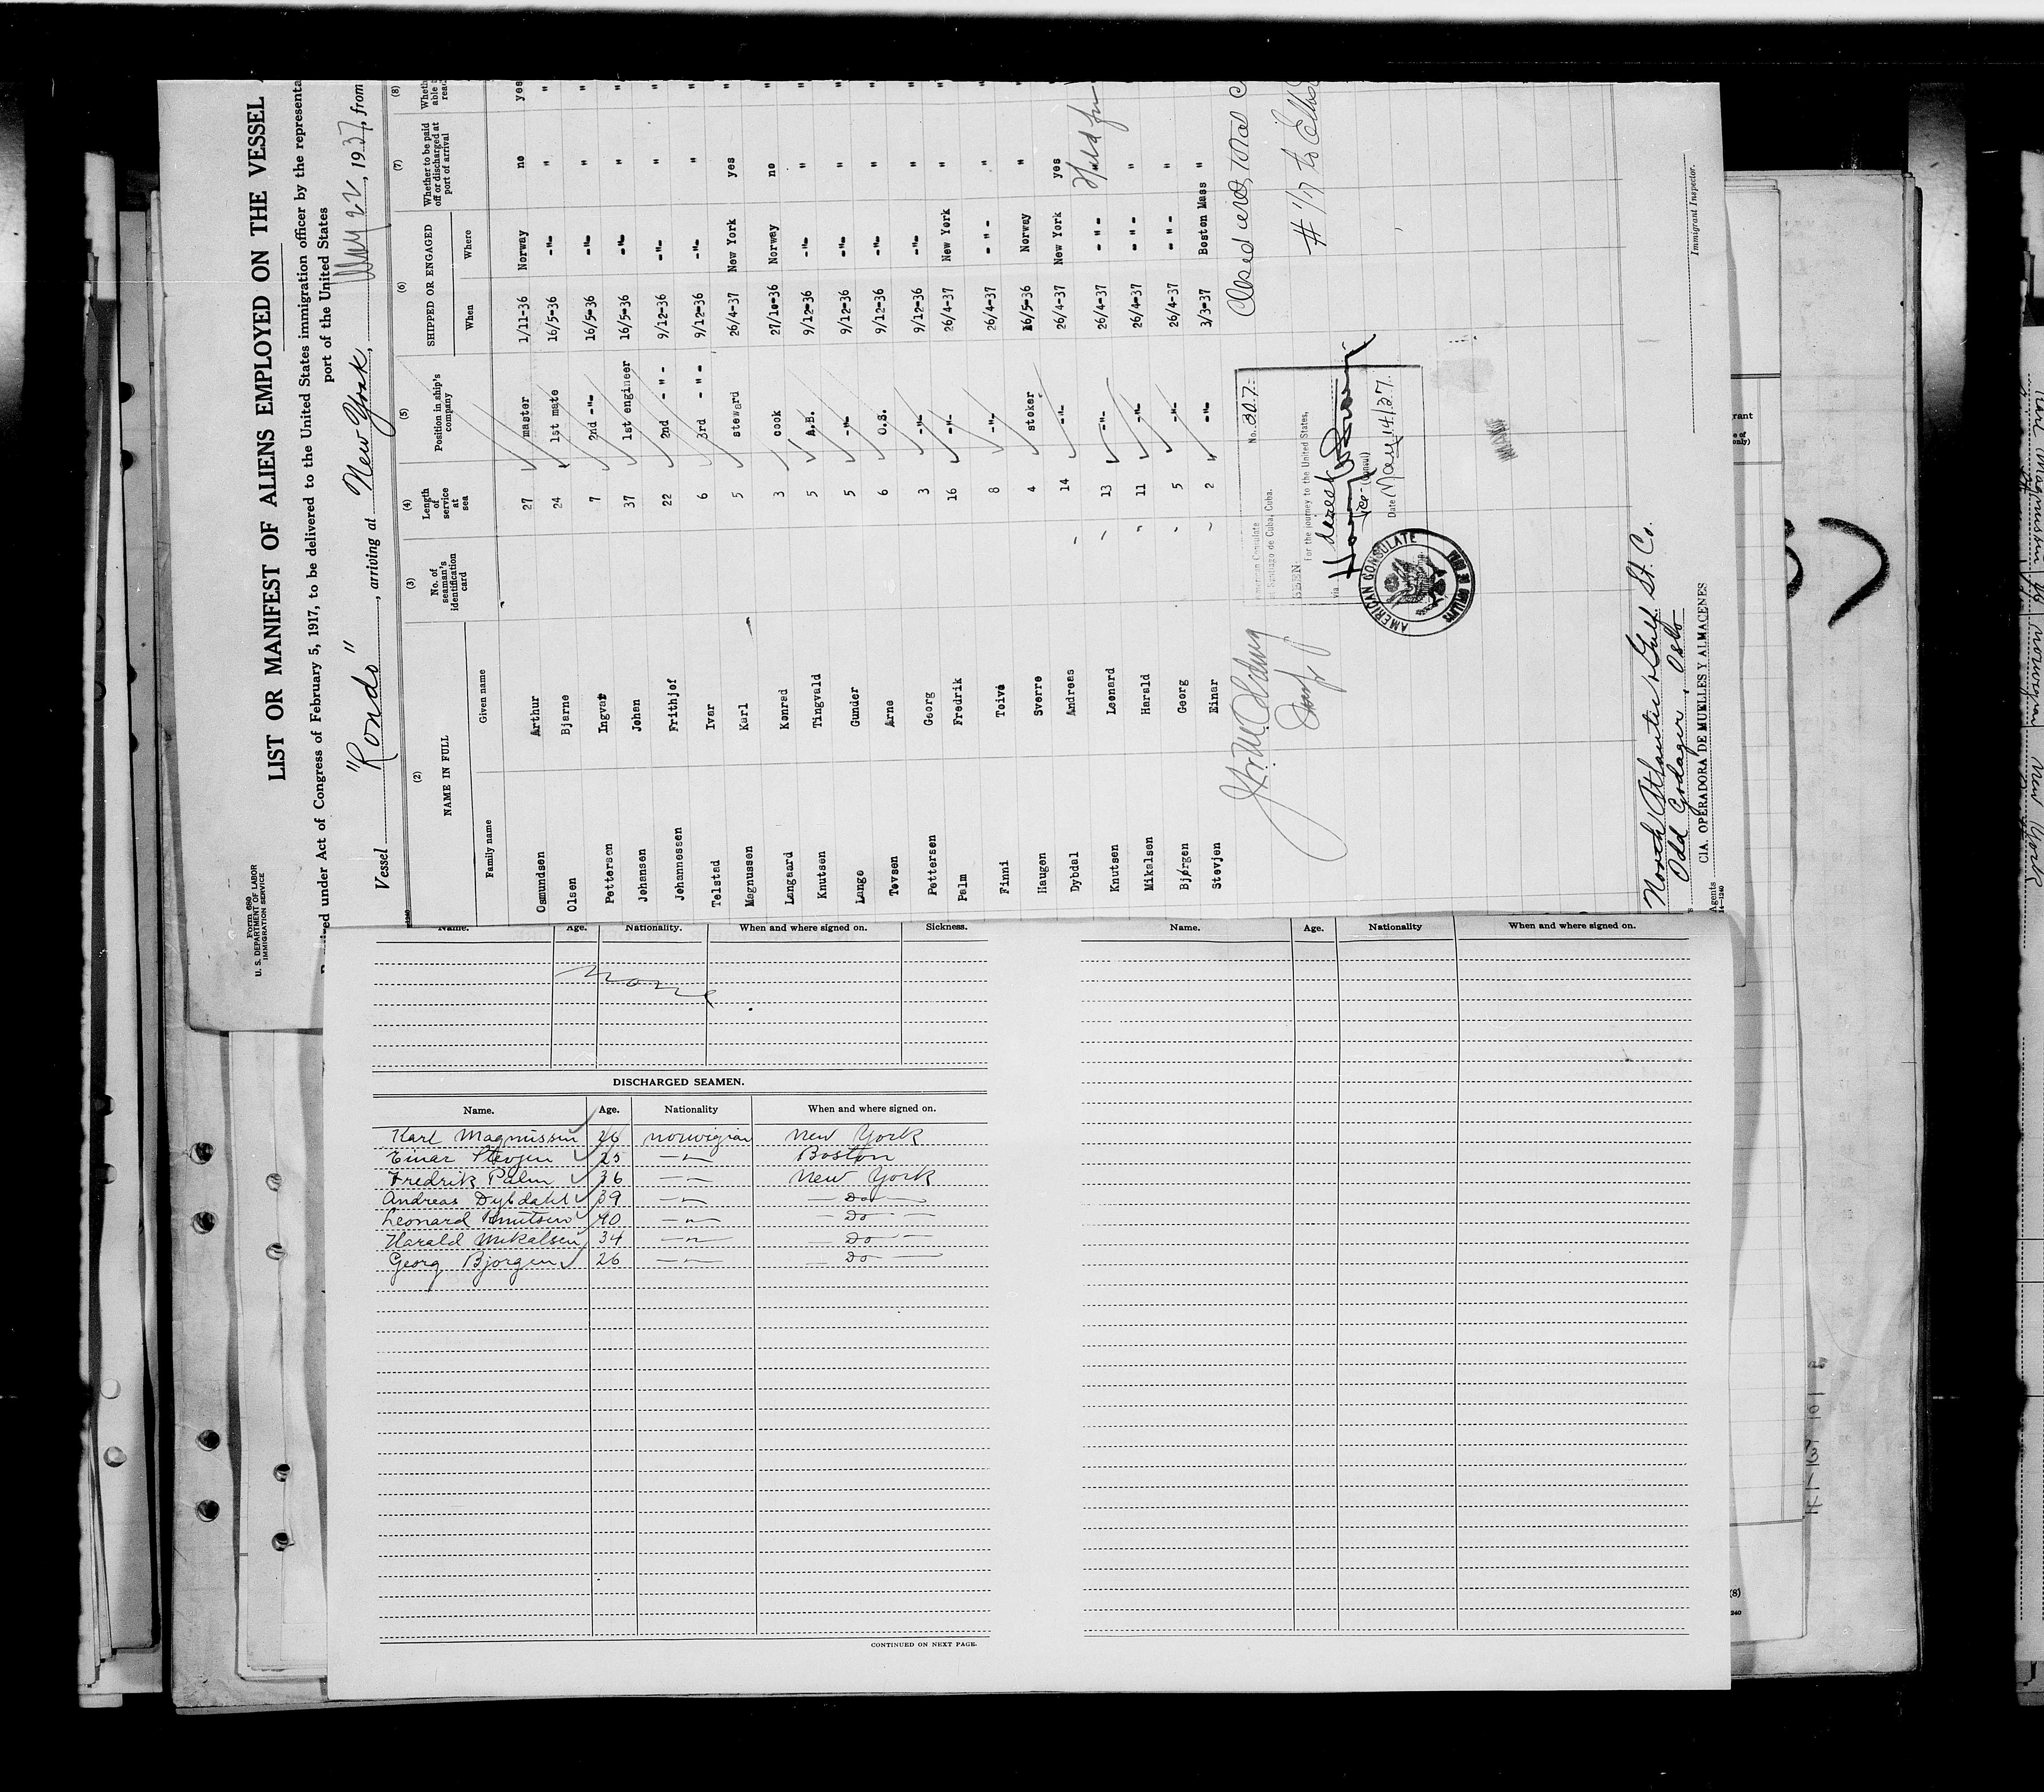 Form 680
U. S. DEPARTMENT OF LABOR
IMMIGRATION SERVICE
LIST OR MANIFEST OF ALIENS EMPLOYED ON THE VESSEL
under Act of Congress of February 5, 1917, to be delivered to the United States immigration officer by the representa
port of the United States
Vessel "Rondo", arriving at New York, May 22, 1937, from
(2) (3) (4) (5) (6) (7) (8)
NAME IN FULL No. of seaman's identification card Length of service at sea Position in ship's company SHIPPED OR ENGAGED Whether to be paid off or discharged at port of arrival
Family name Given name When Where
Osmundsen Arthur 27 master 1/11-36 Norway no yes
Olsen Bjarne 24 1st mate 16/5-36 -"- " "
Pettersen Ingvar 7 2nd -"- 16/5-36 -"- " "
Johansen Johan 37 1st engineer 16/5-36 -"- " "
Johannessen Frithjof 22 2nd - " - 9/12-36 -"- " "
Telstad Ivar 6 3rd - " - 9/12-36 -"- " "
Magnussen Karl 5 steward 26/4-37 New York yes "
Langaard Konrad 3 cook 27/10-36 Norway no "
Knutsen Tingvald 5 A.B. 9/12-36 -"- " "
Lange Gunder 5 -"- 9/12-36 -"- " "
Tovsen Arne 6 O.S. 9/12-36 -"- " "
Pettersen Georg 3 -"- 9/12-36 -"- " "
Palm Fredrik 16 -"- 26/4-37 New York " "
Finni Toivo 8 -"- 26/4-37 - " - " "
Haugen Sverre 4 stoker 16/5-36 Norway " "
Dybdal Andreas 14 -"- 26/4-37 New York yes "
Knutsen Leonard 13 -"- 26/4-37 - " - Held for
Mikalsen Harald 11 -"- 26/4-37 - " - " "
Bjørgen Georg 5 -"- 26/4-37 - " - " "
Stevjen Einar 2 -"- 3/3-37 Boston Mass "
Closed
# 1/17 to Ellis
American Consulate
at Santiago de Cuba, Cuba.
No. 307
SEEN
For the journey to the United States,
via direct
Vice-(Consul)
Date May 14/37.
AMERICAN CONSULATE
North Atlantic & Gulf St. Co.
Odd Godager, Oslo
CIA. OPERADORA DE MUELLES Y ALMACENES
Agents
14-1240
Immigrant Inspector.
Name. Age. Nationality. When and where signed on. Sickness.
None
DISCHARGED SEAMEN.
Name. Age. Nationality When and where signed on.
Karl Magnussen 26 norwigian New York
Einar Stevjen 25 — " — Boston
Fredrik Palm 36 — " — New York
Andreas Dybdahl 39 — " — — Do —
Leonard Knutsen 40 — " — — Do —
Harald Mikalsen 34 — " — — Do —
Georg Bjorgen 26 — " — — Do —
CONTINUED ON NEXT PAGE.
Name. Age. Nationality When and where signed on.